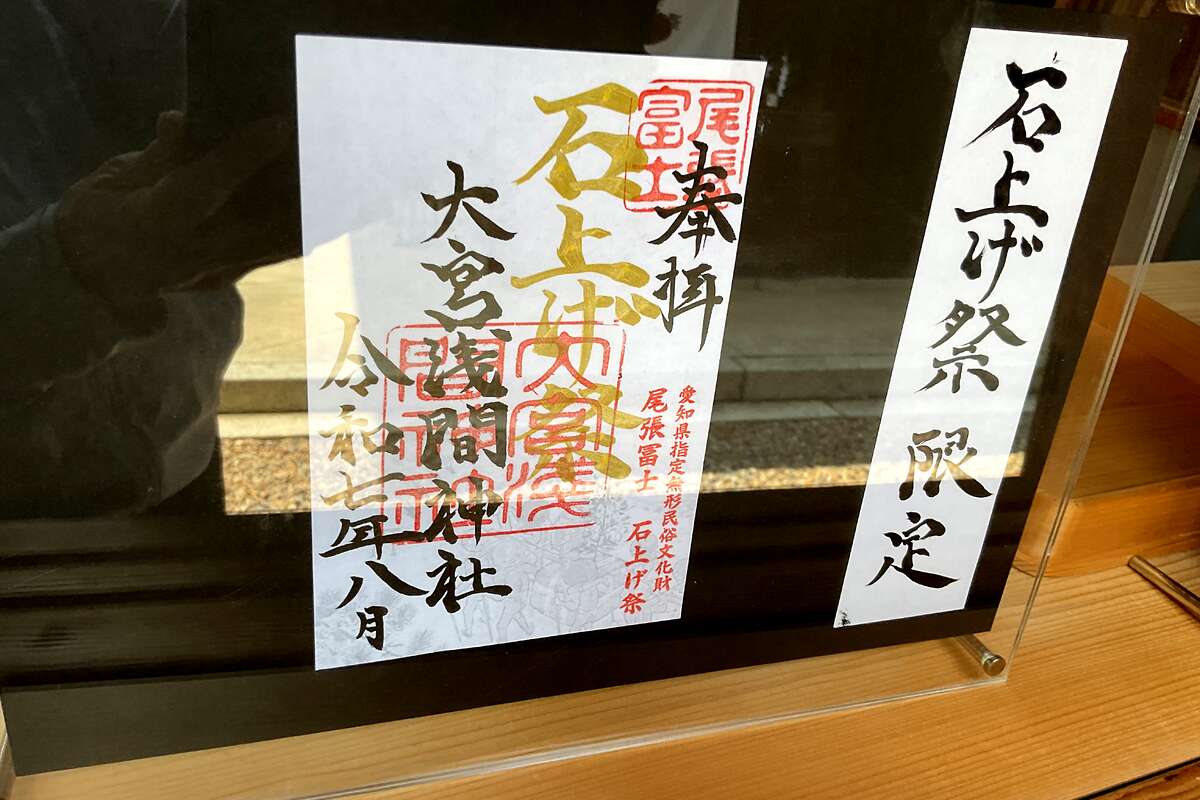 石上げ祭 限定
尾張
冨士
奉拝
石上げ祭
愛知県指定無形民俗文化財
尾張冨士 石上げ祭
大宮浅間神社
大宮浅
間神社
令和七年八月